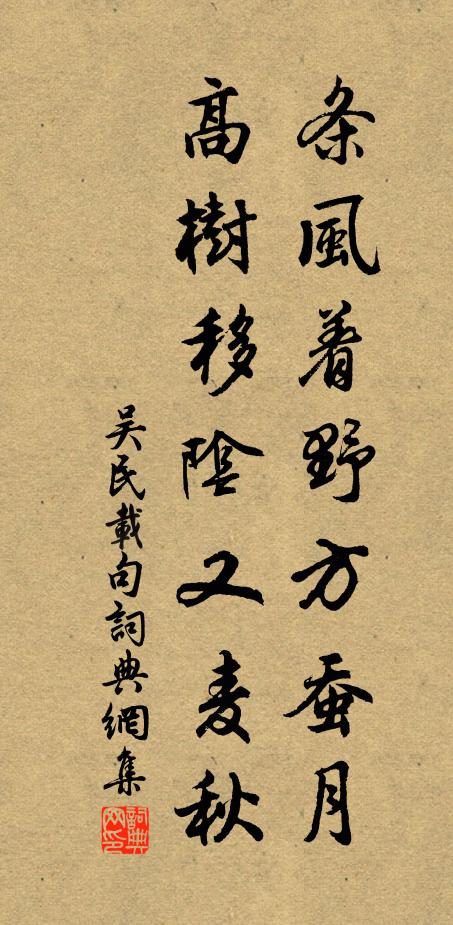 条風着野方蚕月
高樹移陰又麦秋
吴民載句詞典網集
詞典网印